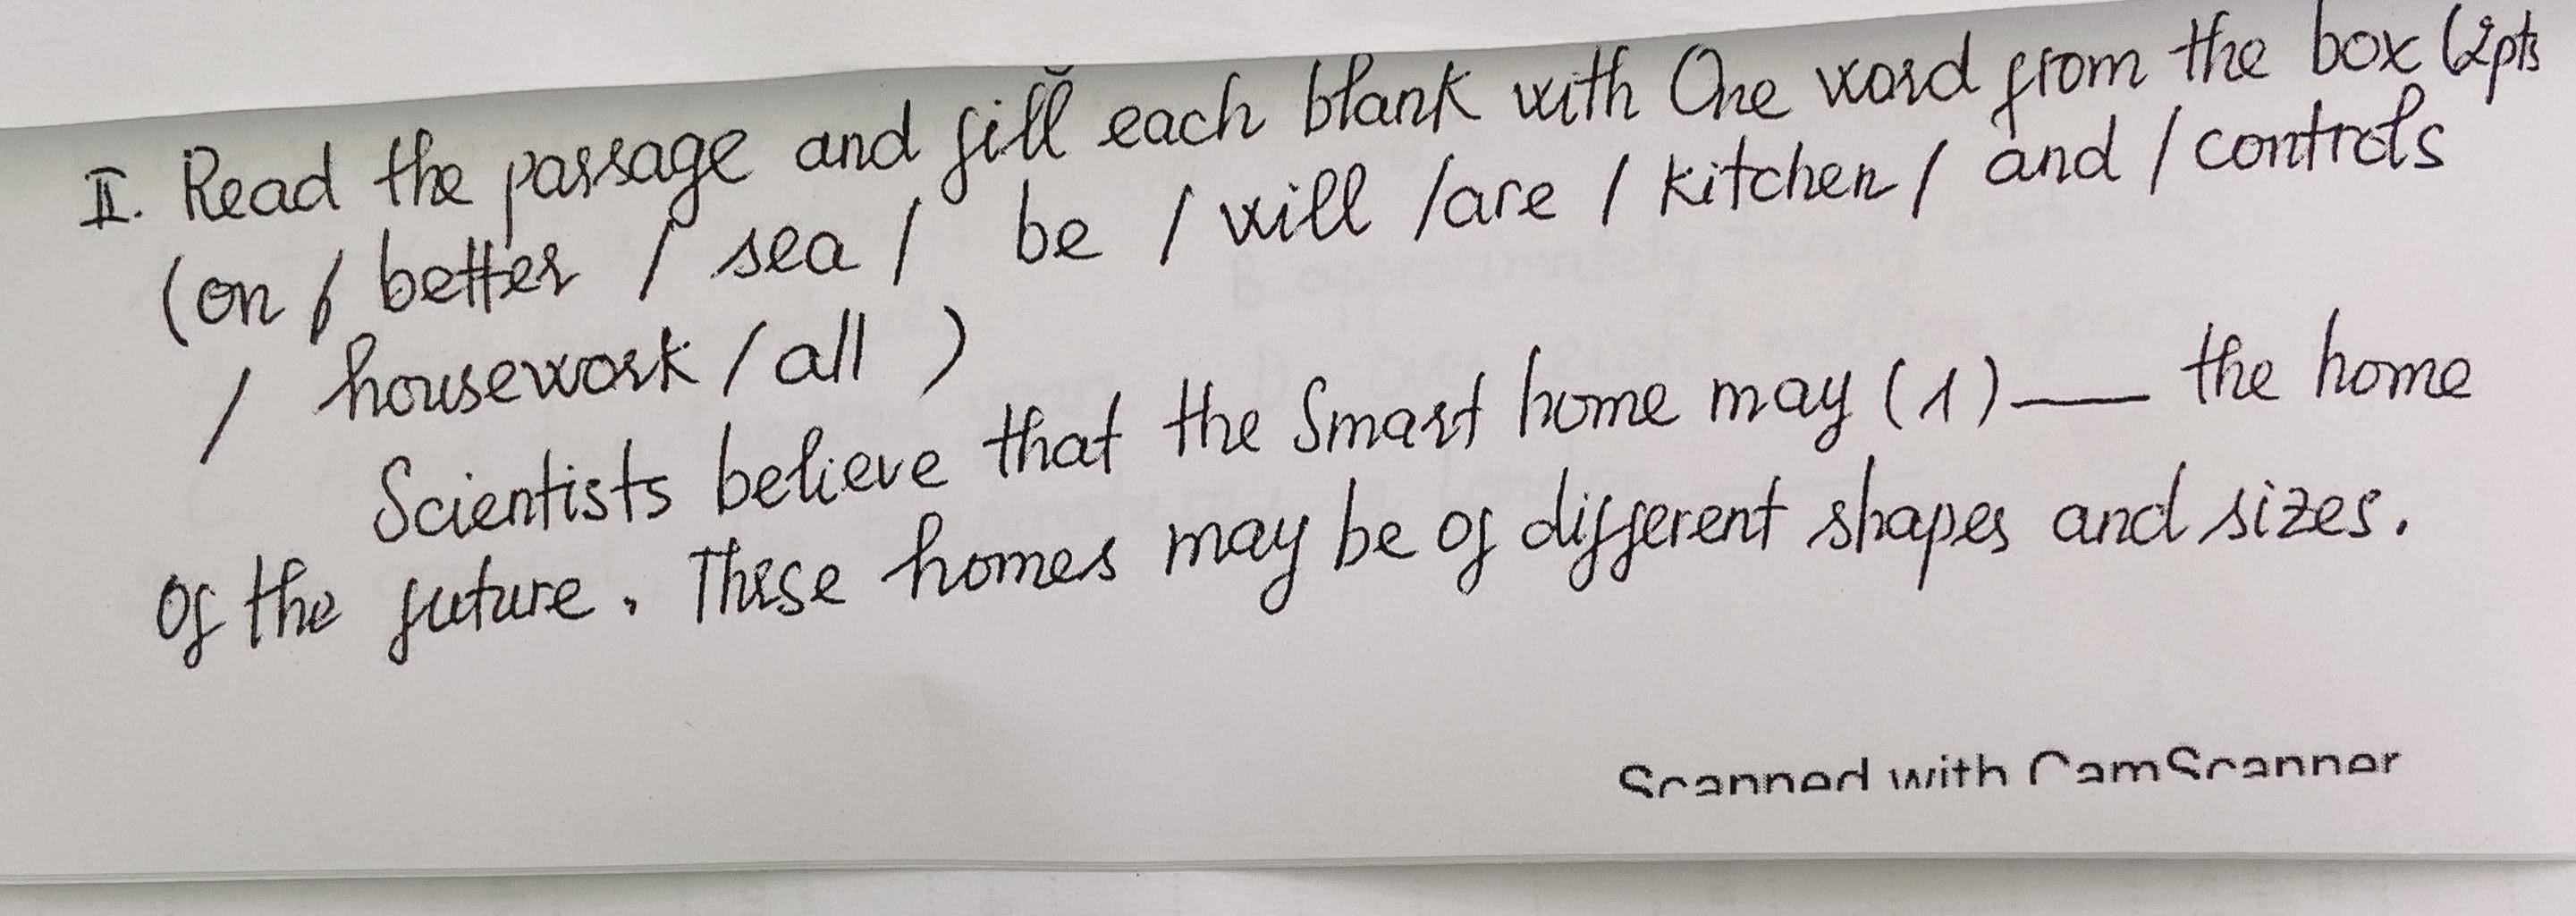 II. Read the passage and fill each blank with One word from the box (2pts
(on / better / sea / be / will / are / kitchen / and / controls
/ housework / all )
Scientists believe that the Smart home may (1) ___ the home
of the future. These homes may be of different shapes and sizes.
Scanned with CamScanner